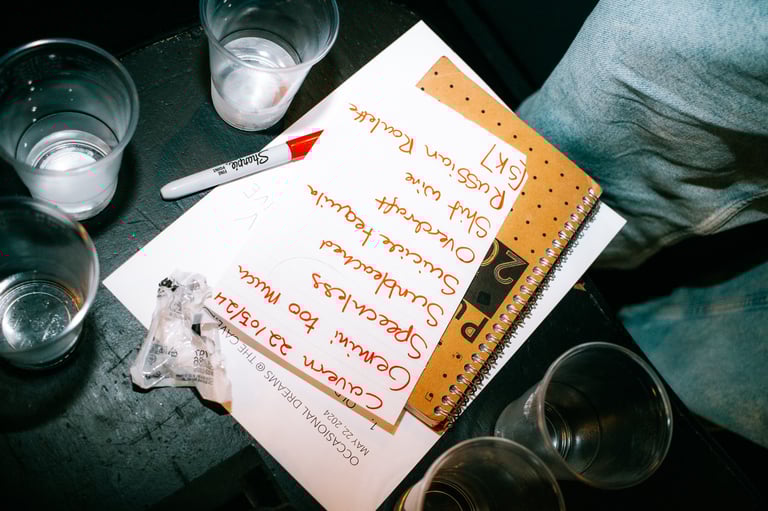 Cavern 22/05/24
Gemini too much
Speechless
Sunbleached
Suicide tequila
Overdraft
Shit wine
Russian Roulette
[SK]
OCCASIONAL DREAMS @ THE CAVE
MAY 22, 2024
1.
Sharpie
FINE POINT
20
PU